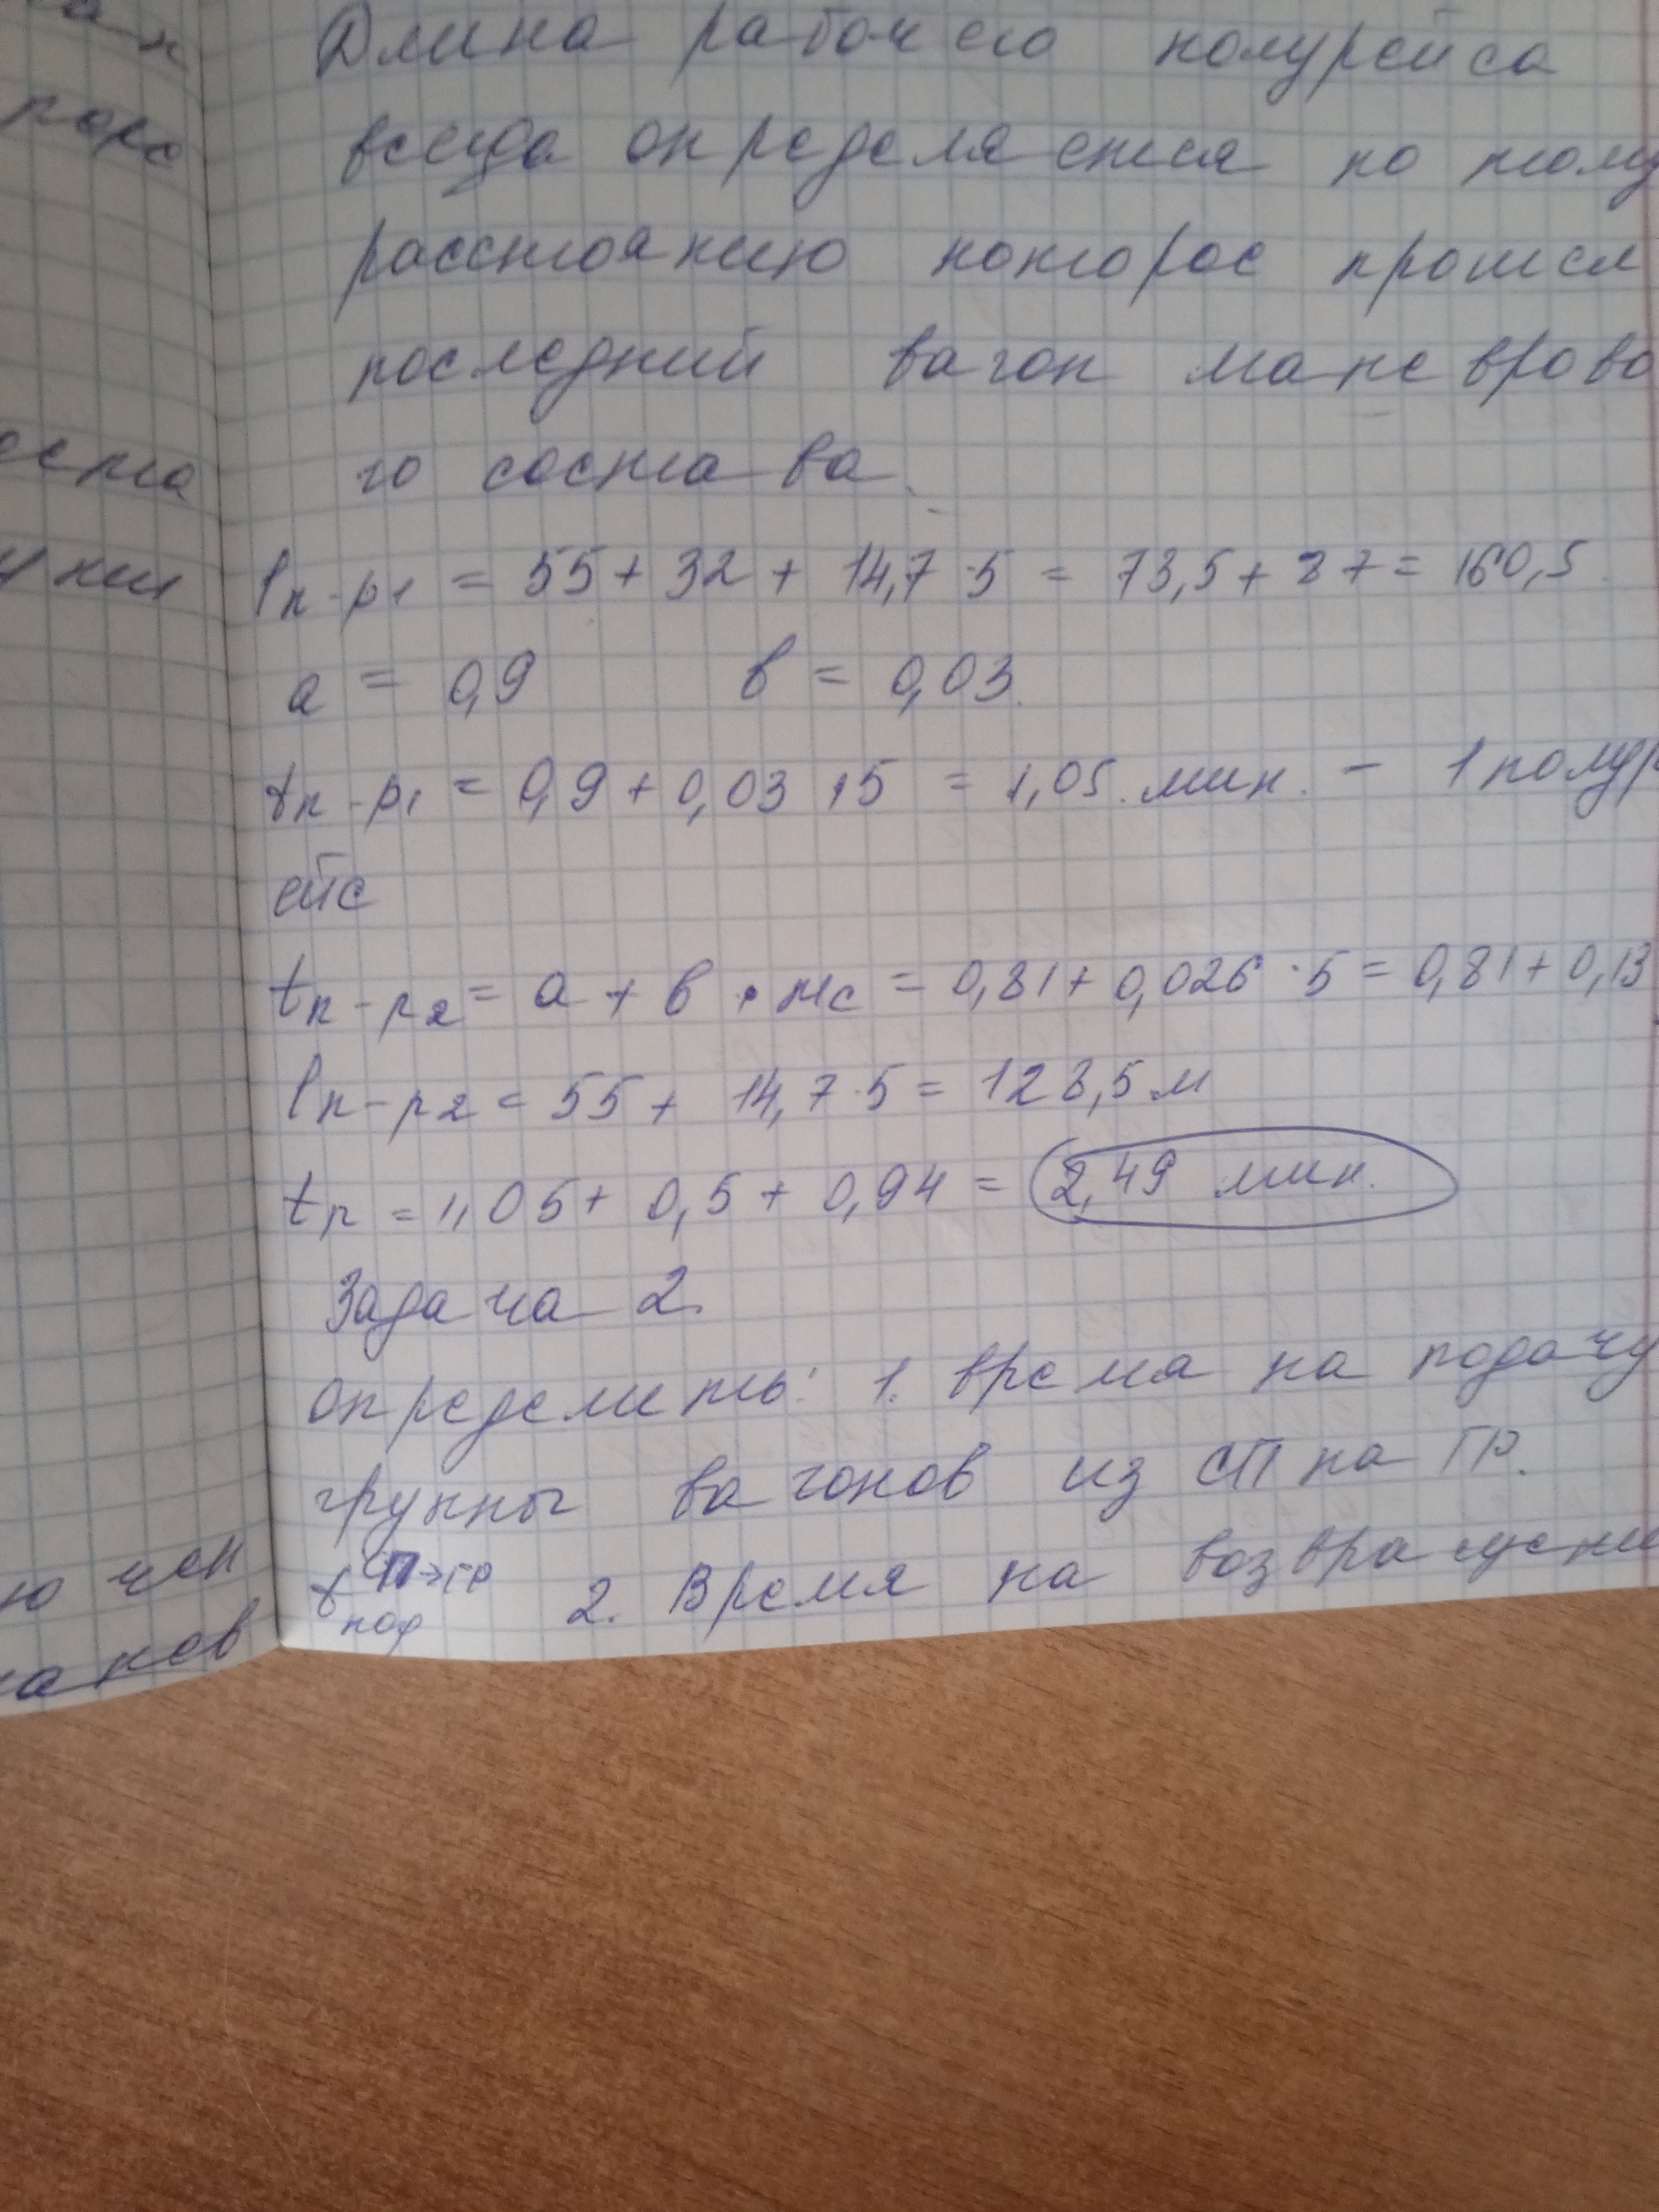 Длина рабочего полурейса
всегда определяется по тому
расстоянию которое прошел
последний вагон маневрово
го состава.
lп-р1 = 55 + 32 + 14,7 · 5 = 73,5 + 87 = 160,5.
а = 0,9 в = 0,03.
tп-р1 = 0,9 + 0,03 · 5 = 1,05. мин. - 1 полур
ейс
tп-р2 = а + в · mс = 0,81 + 0,026 · 5 = 0,81 + 0,13
lп-р2 = 55 + 14,7 · 5 = 128,5 м
tр = 1,05 + 0,5 + 0,94 = 2,49 мин.
Задача 2.
Определить: 1. время на подачу
группы вагонов из СП на ГР.
t СП→ГР под 2. Время на возвращени